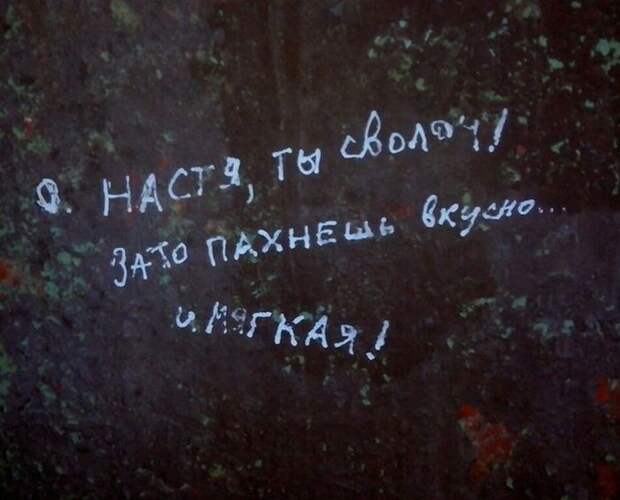 О. НАСТЯ, ТЫ сволоч!
ЗАТО ПАХНЕШЬ вкусно...
и МЯГКАЯ!